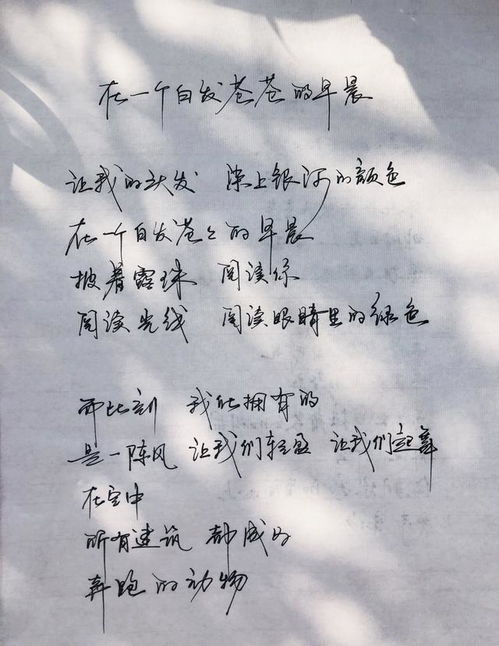 在一个白发苍苍的早晨
让我的头发 染上银河的颜色
在一个白发苍々的早晨
披着露珠 阅读你
阅读光线 阅读眼睛里的绿色
而此刻 我能拥有的
是一阵风 让我们轻盈 让我们起舞
在空中
所有建筑 都成为
奔跑的动物